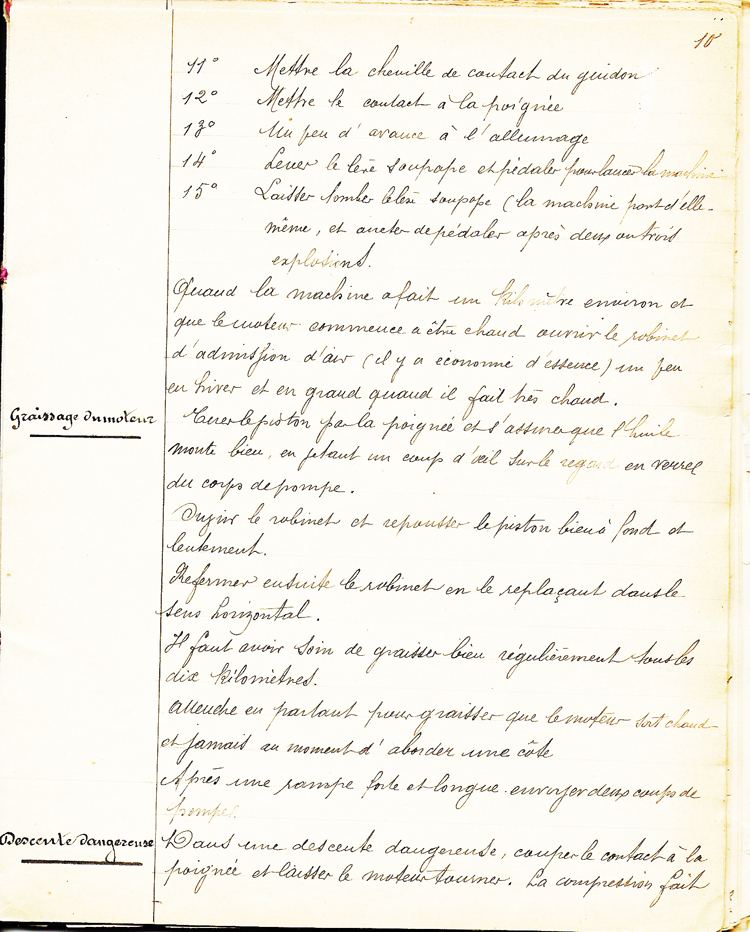 10
11° Mettre la cheville de contact du guidon
12° Mettre le contact à la poignée
13° Un peu d'avance à l'allumage
14° Lever le lève soupape et pédaler pour lancer la machine
15° Laisser tomber le lève soupape (la machine part d'elle-
même, et arreter de pédaler après deux ou trois
explosions.
Quand la machine a fait un kilomètre environ et
que le moteur commence a être chaud ouvrir le robinet
d'admission d'air (il y a économie d'essence) un peu
en hiver et en grand quand il fait très chaud.
Graissage du moteur
Tirer le piston par la poignée et s'assurer que l'huile
monte bien, en jetant un coup d'œil sur le regard en verre
du corps de pompe.
le robinet et repousser le piston bien à fond et
lentement.
Refermer ensuite le robinet en le replaçant dans le
sens horizontal.
Il faut avoir soin de graisser bien régulièrement tous les
dix kilomètres.
Attendre en partant pour graisser que le moteur soit chaud
et jamais au moment d'aborder une côte
Après une rampe forte et longue envoyer deux coups de
pompe.
Descente dangereuse
Dans une descente dangereuse, couper le contact à la
poignée et laisser le moteur tourner. La compression fait